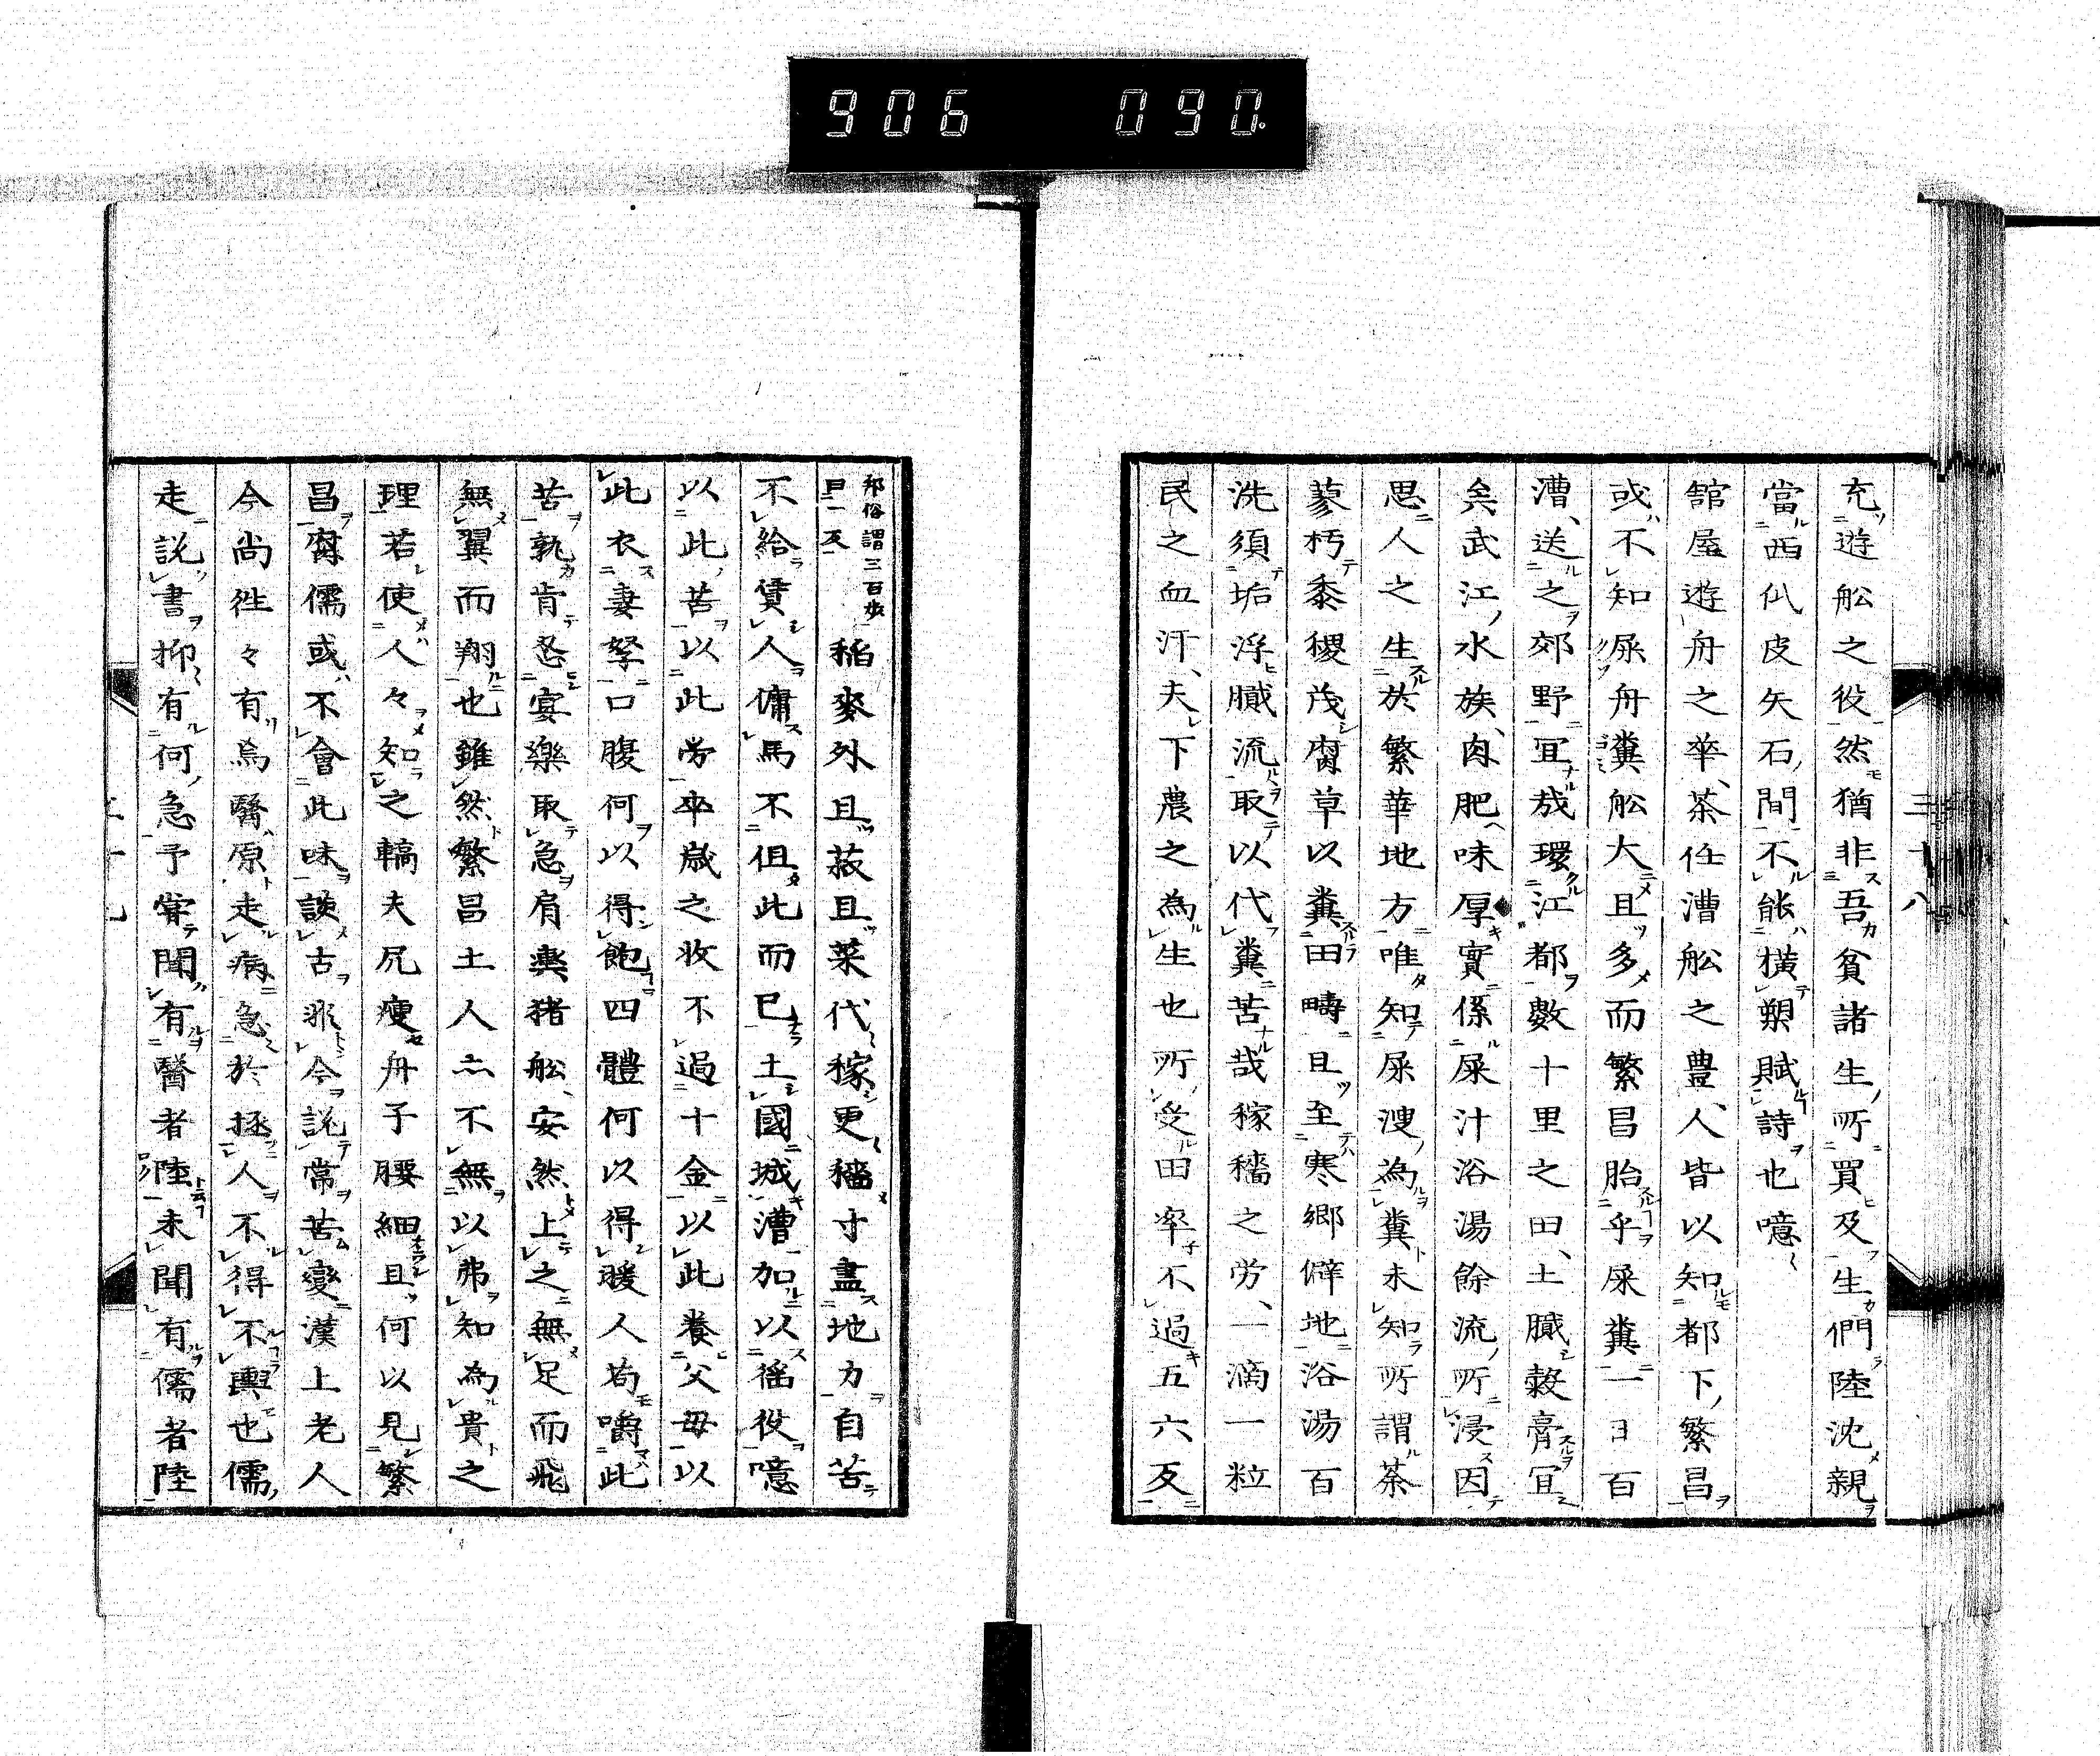 906 090.
三十八
充遊舩之役然猶非吾貧諸生所買及生們陸沈親
當西仙皮矢石間不能横槊賦詩也噫
舘屋遊舟之華茶任漕舩之豊人皆以知都下繁昌
或不知屎舟糞舩大且多而繁昌胎乎屎糞一日百
漕送之郊野冝哉環江都數十里之田土膱穀膏冝
矣武江水族肉肥味厚實係屎汁浴湯餘流所浸因
思人之生於繁華地方唯知屎溲為糞未知所謂茶
蓼朽黍稷茂腐草以糞田疇且至寒郷僻地浴湯百
洗須垢浮膱流取以代糞苦哉稼穡之労一滴一粒
民之血汗夫下農之為生也所受田率不過五六反
邦俗謂三百歩
曰一反
稲麥外且菽且菜代稼更穡寸盡地力自苦
不給賃人傭馬不但此而已土國城漕加以徭役噫
以此苦以此労卒歳之收不過十金以此養父母以
此衣妻孥口腹何以得飽四體何以得暖人苟嚼此
苦孰肯恣宴樂取急肩輿猪舩安然上之無足而飛
無翼而翔也雖然繁昌土人亠不無以弗知為貴之
理若使人々知之轎夫尻痩舟子腰細且何以見繁
昌腐儒或不會此味談古非今説常苦變漢上老人
今尚徃々有焉醫原走病急於拯人不得不輿也儒
走説書抑有何急予甞聞有醫者陸未聞有儒者陸